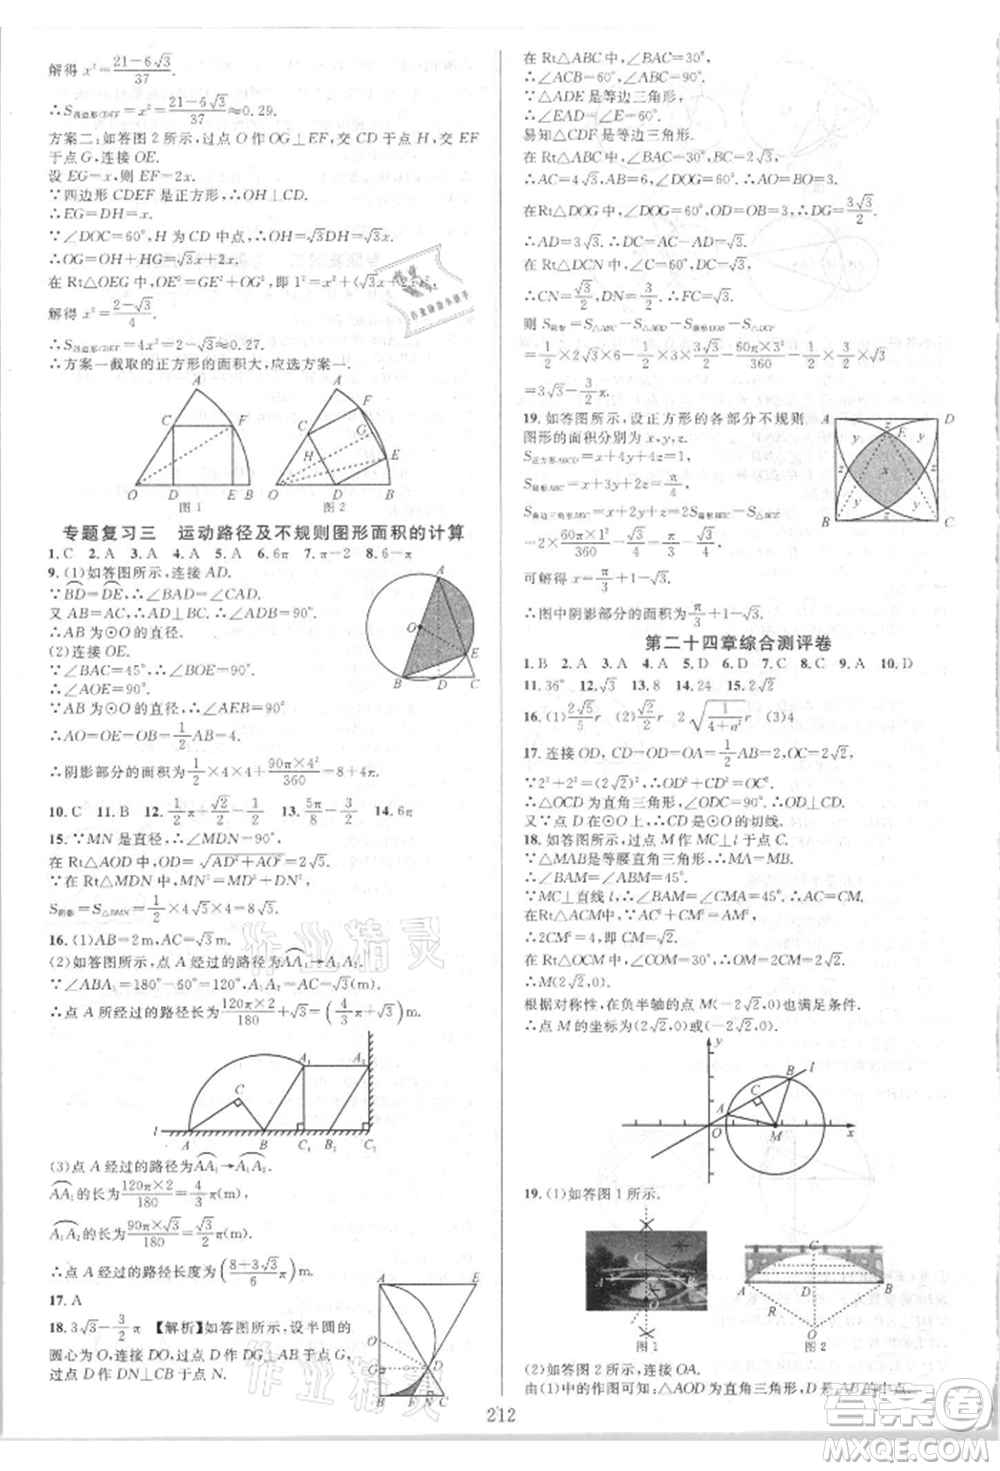 解得 x²=(21-6√3)/37.
∴S四边形CDEF=x²=(21-6√3)/37≈0.29.
方案二:如答图 2 所示,过点 O 作 OG⊥EF,交 CD 于点 H,交 EF
于点 G,连接 OE.
设 EG=x,则 EF=2x.
∵四边形 CDEF 是正方形,∴OH⊥CD.
∴EG=DH=x.
∵∠DOC=60°,H 为 CD 中点,∴OH=√3DH=√3x.
∴OG=OH+HG=√3x+2x.
在 Rt△OEG 中,OE²=EG²+OG²,即 1²=x²+(√3x+2x)².
解得 x²=(2-√3)/4.
∴S四边形CDEF=4x²=2-√3≈0.27.
∴方案一截取的正方形的面积大,应选方案一.
A C F O D E B 图 1
A F C G H E O D B 图 2
专题复习三 运动路径及不规则图形面积的计算
1. C 2. A 3. A 4. A 5. A 6. 6π 7. π-2 8. 6-π
9. (1)如答图所示,连接 AD.
∵BD=DE,∴∠BAD=∠CAD.
又 AB=AC,∴AD⊥BC.∴∠ADB=90°.
∴AB 为⊙O 的直径.
(2)连接 OE.
∵∠BAC=45°,∴∠BOE=90°.
∴∠AOE=90°.
∵AB 为⊙O 的直径,∴∠AEB=90°.
∴AO=OE=OB=1/2AB=4.
∴阴影部分的面积=1/2×4×4+90π×4²/360=8+4π.
A O E B D C
10. C 11. B 12. 1/2π+√2/2-1/2 13. 5π/8-3/2 14. 6π
15. ∵MN 是直径,∴∠MDN=90°.
在 Rt△AOD 中,OD=√(AD²+AO²)=2√5.
∵在 Rt△MDN 中,MN=4√5,
S阴影=S△DMN=1/2×4√5×2√5=20.
16. (1)AB=2 m,AC=√3 m.
(2)如答图所示,点 A 运动的路径为AA₁→A₁A₂.
∵∠ABA₁=180°-60°=120°,A₁A₂=AC=√3(m).
∴点 A 所经过的路径长为 120π×2/180+√3=(4/3π+√3)m.
A₁ A₂ C l A B C₁ B₂ C₂
(3)点 A 经过的路径为AA₁→A₁A₂.
AA₁的长为 120π×2/180=4/3π(m).
A₁A₂的长为 90π×√3/180=√3/2π(m).
∴点 A 经过的路径长度为((8+3√3)/6 π)m.
17. A
18. 3√3-3/2π 【解析】如答图所示,设半圆的
圆心为 O,连接 DO,过点 D 作 DG⊥AB 于点
G,过点 D 作 DN⊥CB 于点 N.
A E O G D B F N C
在 Rt△ABC 中,∠BAC=30°.
∴∠ACB=60°,∠ABC=90°.
∵△ADE 是等边三角形,
∴∠EAD=∠E=60°.
易知△CDF 是等边三角形.
在 Rt△DOG 中,∠BAC=30°,
∴AC=4√3,∠DOG=60°,∴AO=BO=3.
在Rt△DOG中,∠DOG=60°,OD=OB=3,∴DG=3√3/2.
∴AD=3√3,∴DC=AC-AD=√3.
在 Rt△DCN 中,∠DCN=60°,
∴CN=√3/2,DN=3/2,CF=√3.
则 S阴影=S△ABC-S△AOD-S扇形DOB-S△DCF
=1/2×2√3×6-1/2×3×3√3/2-60π×3²/360-1/2×3/2×√3
=3√3-3/2π.
19. 如答图所示,设正方形的各部分不规则
图形的面积分别为 x,y,z.
S正方形ABCD=x+4y+4z=1,
S扇形ABC=x+3y+2z,
S曲边三角形EBC=x+2y+z
=2×60π×1²/360-1/2×1×√3/2=π/3-√3/4.
可解得 x=π/3+1-√3.
∴图中阴影部分的面积为π/3+1-√3.
A D E z y x B C
第二十四章综合测评卷
1. B 2. A 3. A 4. A 5. D 6. D 7. C 8. C 9. A 10. D
11. 36° 12. √3 13. 8 14. 24 15. 2√2
16. (1)2√5/5 r (2)√2/2 r 2√(1/(4+n²)) r (3)4
17. 连接 OD,CD=OD=OA=1/2AB=2,OC=2√2.
∵2²+2²=(2√2)²,∴OD²+CD²=OC².
∴△OCD 为直角三角形,∴∠ODC=90°.
又∵点 D 在⊙O 上,∴CD 是⊙O 的切线.
18. 如答图所示,过点 M 作 MC⊥l 于点 C.
∵△MAB是等腰直角三角形,∴MA=MB.
∴∠BAM=∠ABM=45°.
∵MC⊥直线 l,∴∠BAM=∠CMA=45°,∴AC=CM.
在Rt△ACM 中,∵AC²+CM²=AM²,
∴2CM²=4,∴CM=√2.
∴M(2√2,0).
根据对称性,在负半轴的点 M(-2√2,0)也满足条件.
∴点 M 的坐标为(2√2,0)或(-2√2,0).
y B l C A O M x
19. (1)如答图 1 所示.
图 1
C A D B R O 图 2
(2)如答图 2 所示,连接 OA.
由(1)中的作图可知:△AOD 为直角三角形,D 是 AB 的中点,
212
作业精灵
作业精灵
答案卷
MXQE.COM